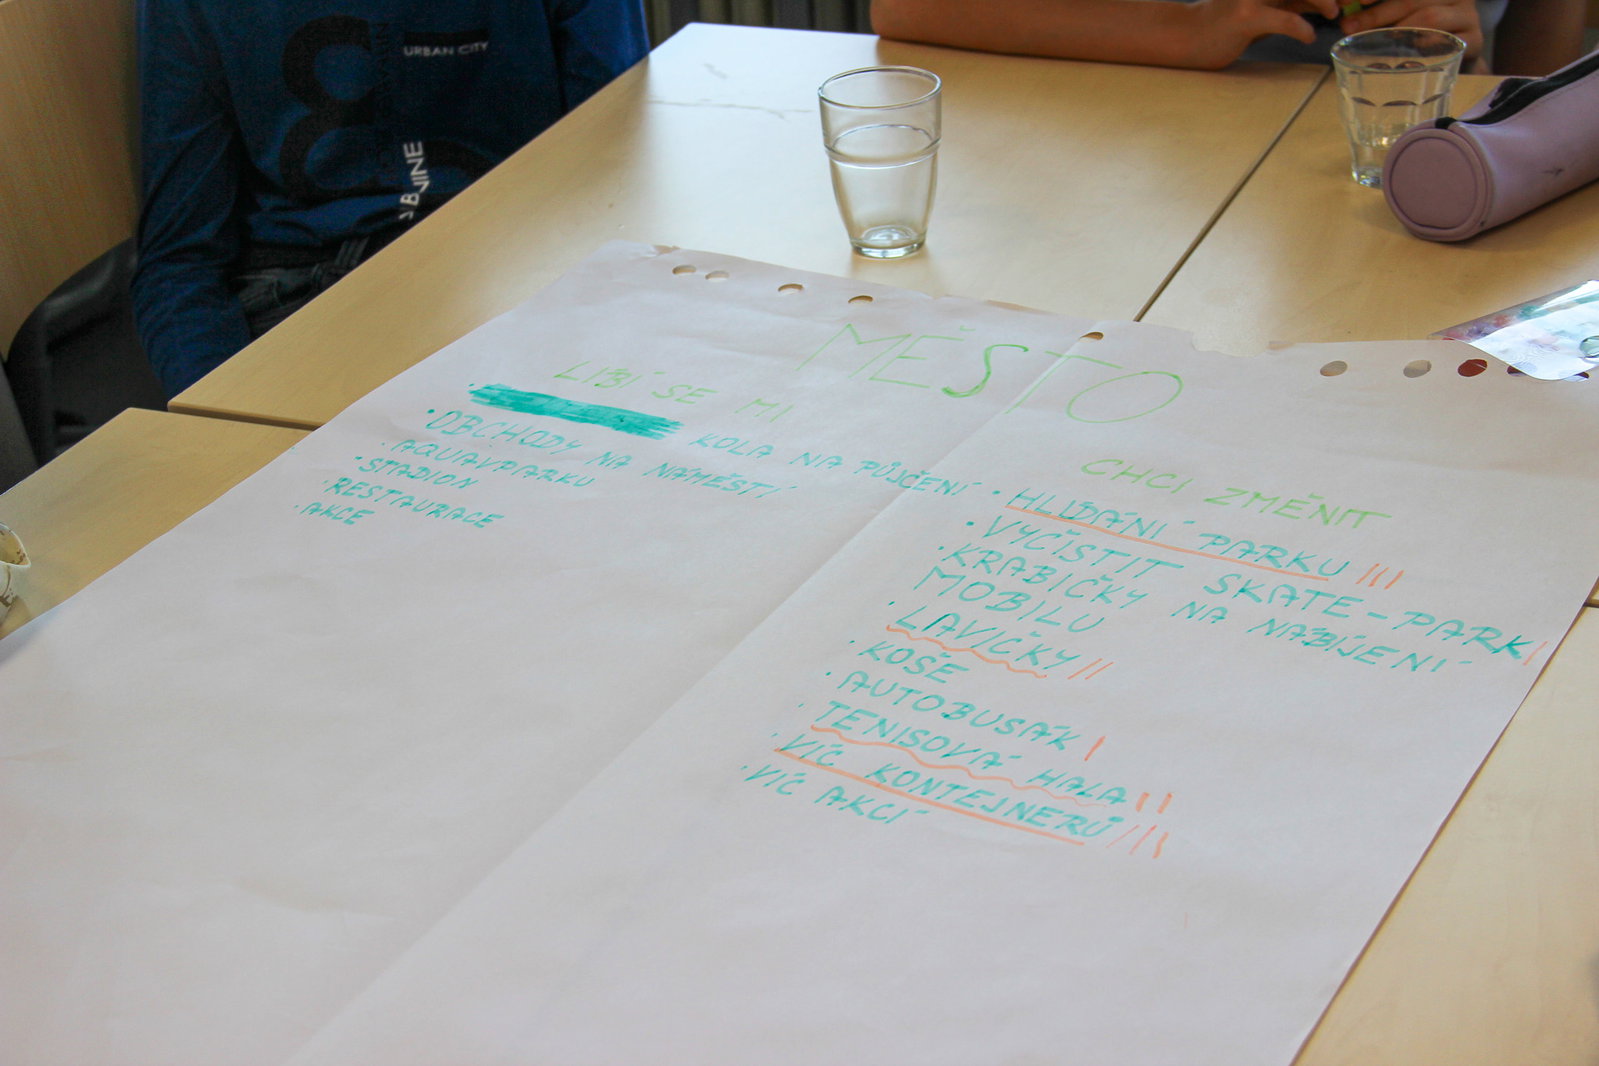 URBAN CITY
MĚSTO
LÍBÍ SE MI
KOLA NA PŮJČENÍ
• OBCHODY NA NÁMĚSTÍ
• AQUAVPARKU
• STADION
• RESTAURACE
• AKCE
CHCI ZMĚNIT
• HLÍDÁNÍ PARKU III
• VYČÍSTIT SKATE-PARK I
• KRABIČKY NA NABÍJENÍ
MOBILU
• LAVIČKY II
• KOŠE
• AUTOBUSÁK I
• TENISOVÁ HALA II
• VÍC KONTEJNERŮ III
• VÍC AKCÍ